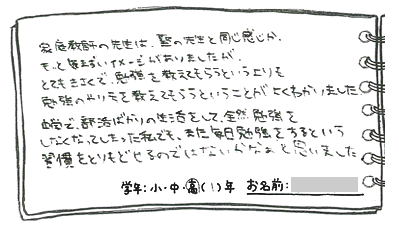 家庭教師の先生は、塾の先生と同じ感じか、
もっと気まずいイメージがありましたが、
とてもきさくで、勉強を教えてもらうというよりも
勉強のやり方を教えてもらうということがよくわかりました
で、部活ばかりの生活をして、全然勉強を
しなくなってしまった私でも、また毎日勉強をするという
習慣をとりもどせるのではないかなぁと思いました
学年:小・中・高(1)年 お名前: